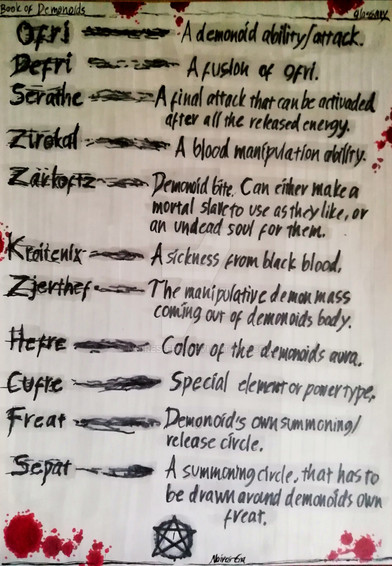 Book of Demonoids
glossary
Ofri A demonoid ability/attack.
Defri A fusion of ofri.
Serathe A final attack that can be activaded
after all the released energy.
Zirokal A blood manipulation ability.
Zarkoftz Demonoid bite. Can either make a
mortal slave to use as they like, or
an undead soul for them.
Kroitenix A sickness from black blood.
Zjerthef The manipulative demon mass
coming out of demonoids body.
Hefre Color of the demonoids aura.
Cufre Special element or power type.
Freat Demonoid's own summoning/
release circle.
Sepat A summoning circle, that has to
be drawn around demonoids own
freat.